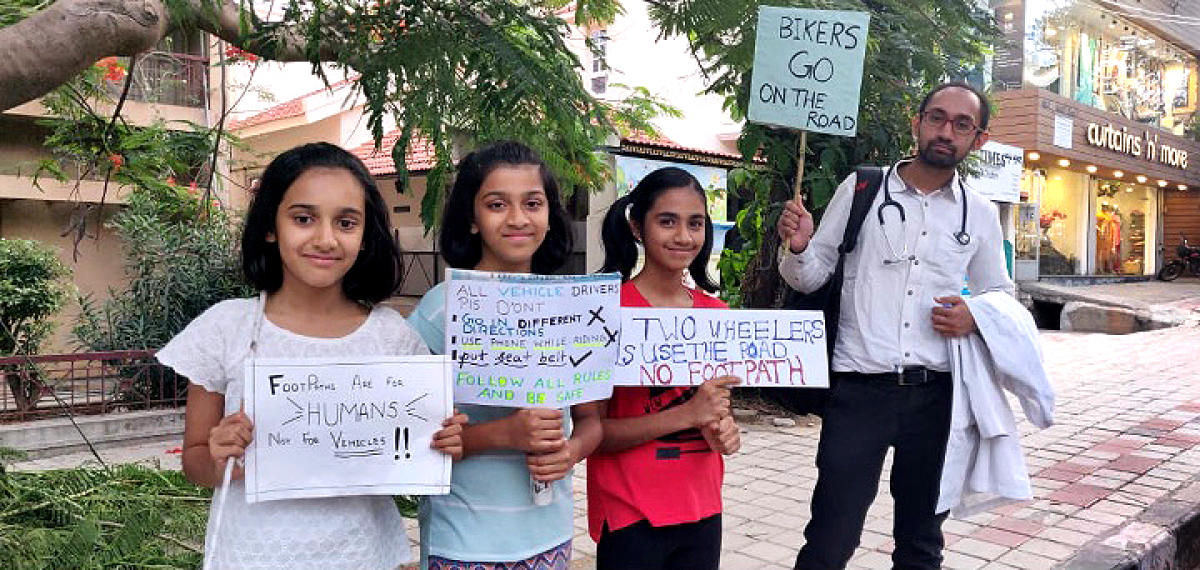 FOOTPATHS ARE FOR
HUMANS
NOT FOR VEHICLES !!
ALL VEHICLE DRIVERS
Pls D'ONT
GO IN DIFFERENT
DIRECTIONS
USE PHONE WHILE RIDING
put seat belt
FOLLOW ALL RULES
AND BE SAFE
TWO WHEELERS
USE THE ROAD
NO FOOTPATH
BIKERS
GO
ON THE
ROAD
curtains 'n' more